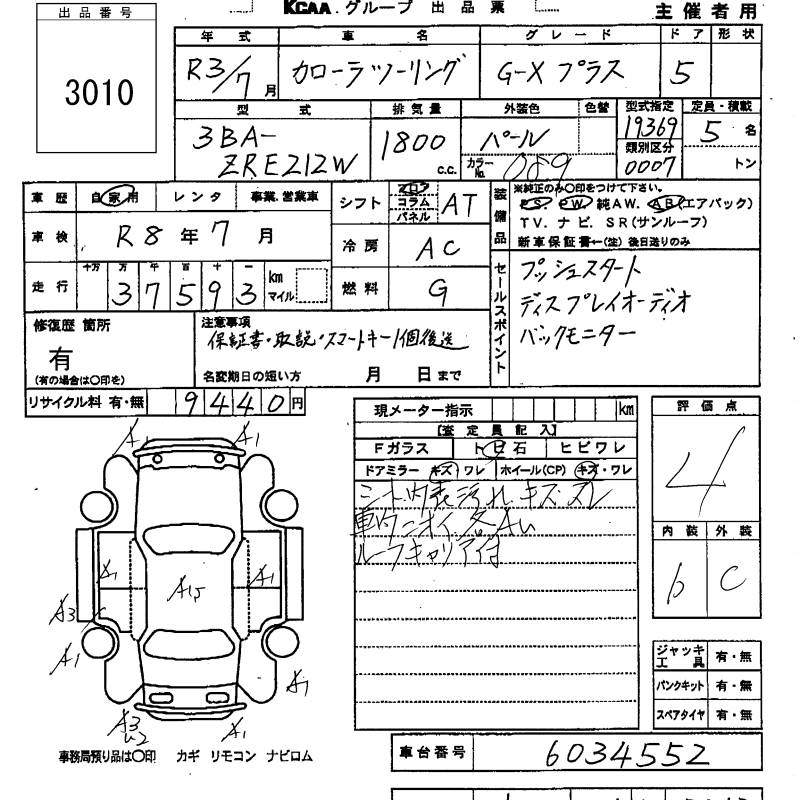 KCAA.グループ 出品票 主催者用
出品番号
3010
年式 車名 グレード ドア 形状
R3/7月 カローラツーリング G-X プラス 5
型式 排気量 外装色 色替 型式指定 定員・積載
3BA-ZRE212W 1800 c.c. パール カラーNo. 089 19369 5名
類別区分 0007 トン
車歴 自家用 レンタ 事業.営業車 シフト フロア コラム パネル AT
車検 R8年7月 冷房 AC
走行 十万 万 千 百 十 一 km マイル 燃料 G
37593
装備品 ※純正のみ○印をつけて下さい。
PS. PW. 純AW. AB(エアバック)
TV. ナビ. SR(サンルーフ)
新車保証書←(注) 後日送りのみ
セールスポイント プッシュスタート
ディスプレイオーディオ
バックモニター
修復歴 箇所
有
(有の場合は○印を)
注意事項
保証書・取説・スマートキー1個後送
名変期日の短い方 月 日まで
リサイクル料 有・無 9440円
現メーター指示 km
【査定員記入】
Fガラス トビ石 ヒビワレ
ドアミラー キズ・ワレ ホイール(CP) キズ・ワレ
シート内張汚れ キズ スレ
車内ニオイ 各AU
ルーフキャリア付
評価点
4
内装 外装
b C
A1 A1
A1 A15 A1
A3
A1 A1
A3 U2 A1
ジャッキ工具 有・無
パンクキット 有・無
スペアタイヤ 有・無
事務局預り品は○印 カギ リモコン ナビロム
車台番号 6034552